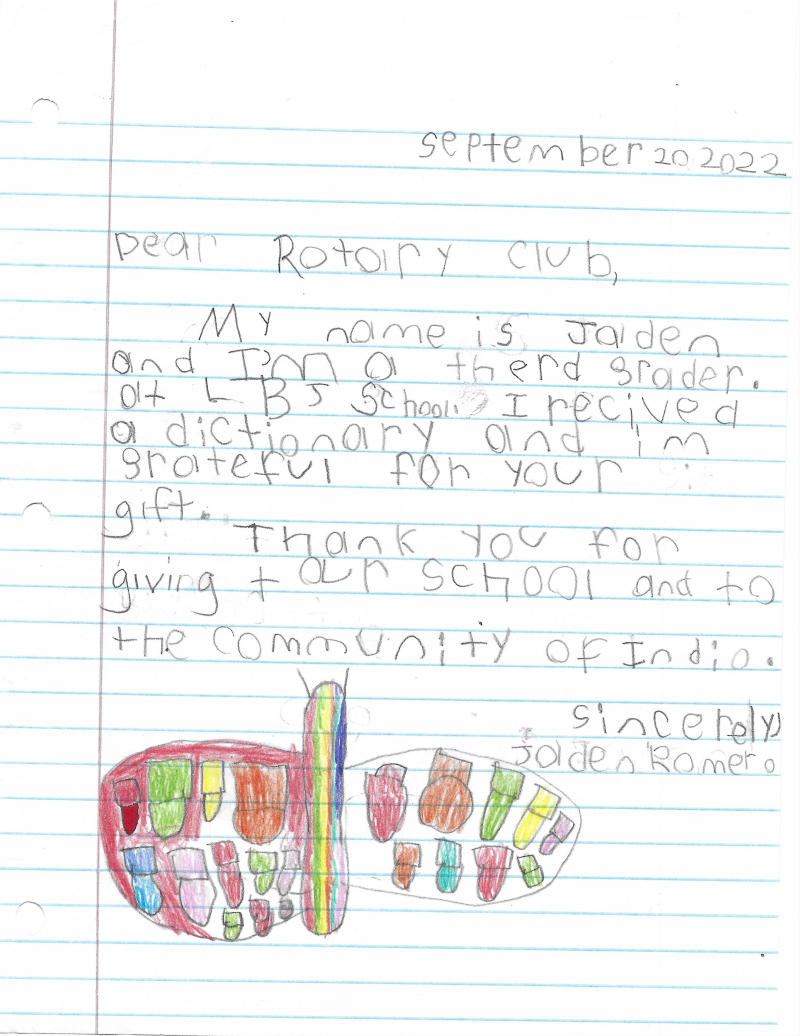 september 20 2022
Dear Rotairy Club,
My name is Jaiden
and I'm a therd grader.
at LBJ School. I recived
a dictionary and im
grateful for your
gift.
Thank you for
giving t our school and to
the community of Indio.
sincerely
Jaiden Romero